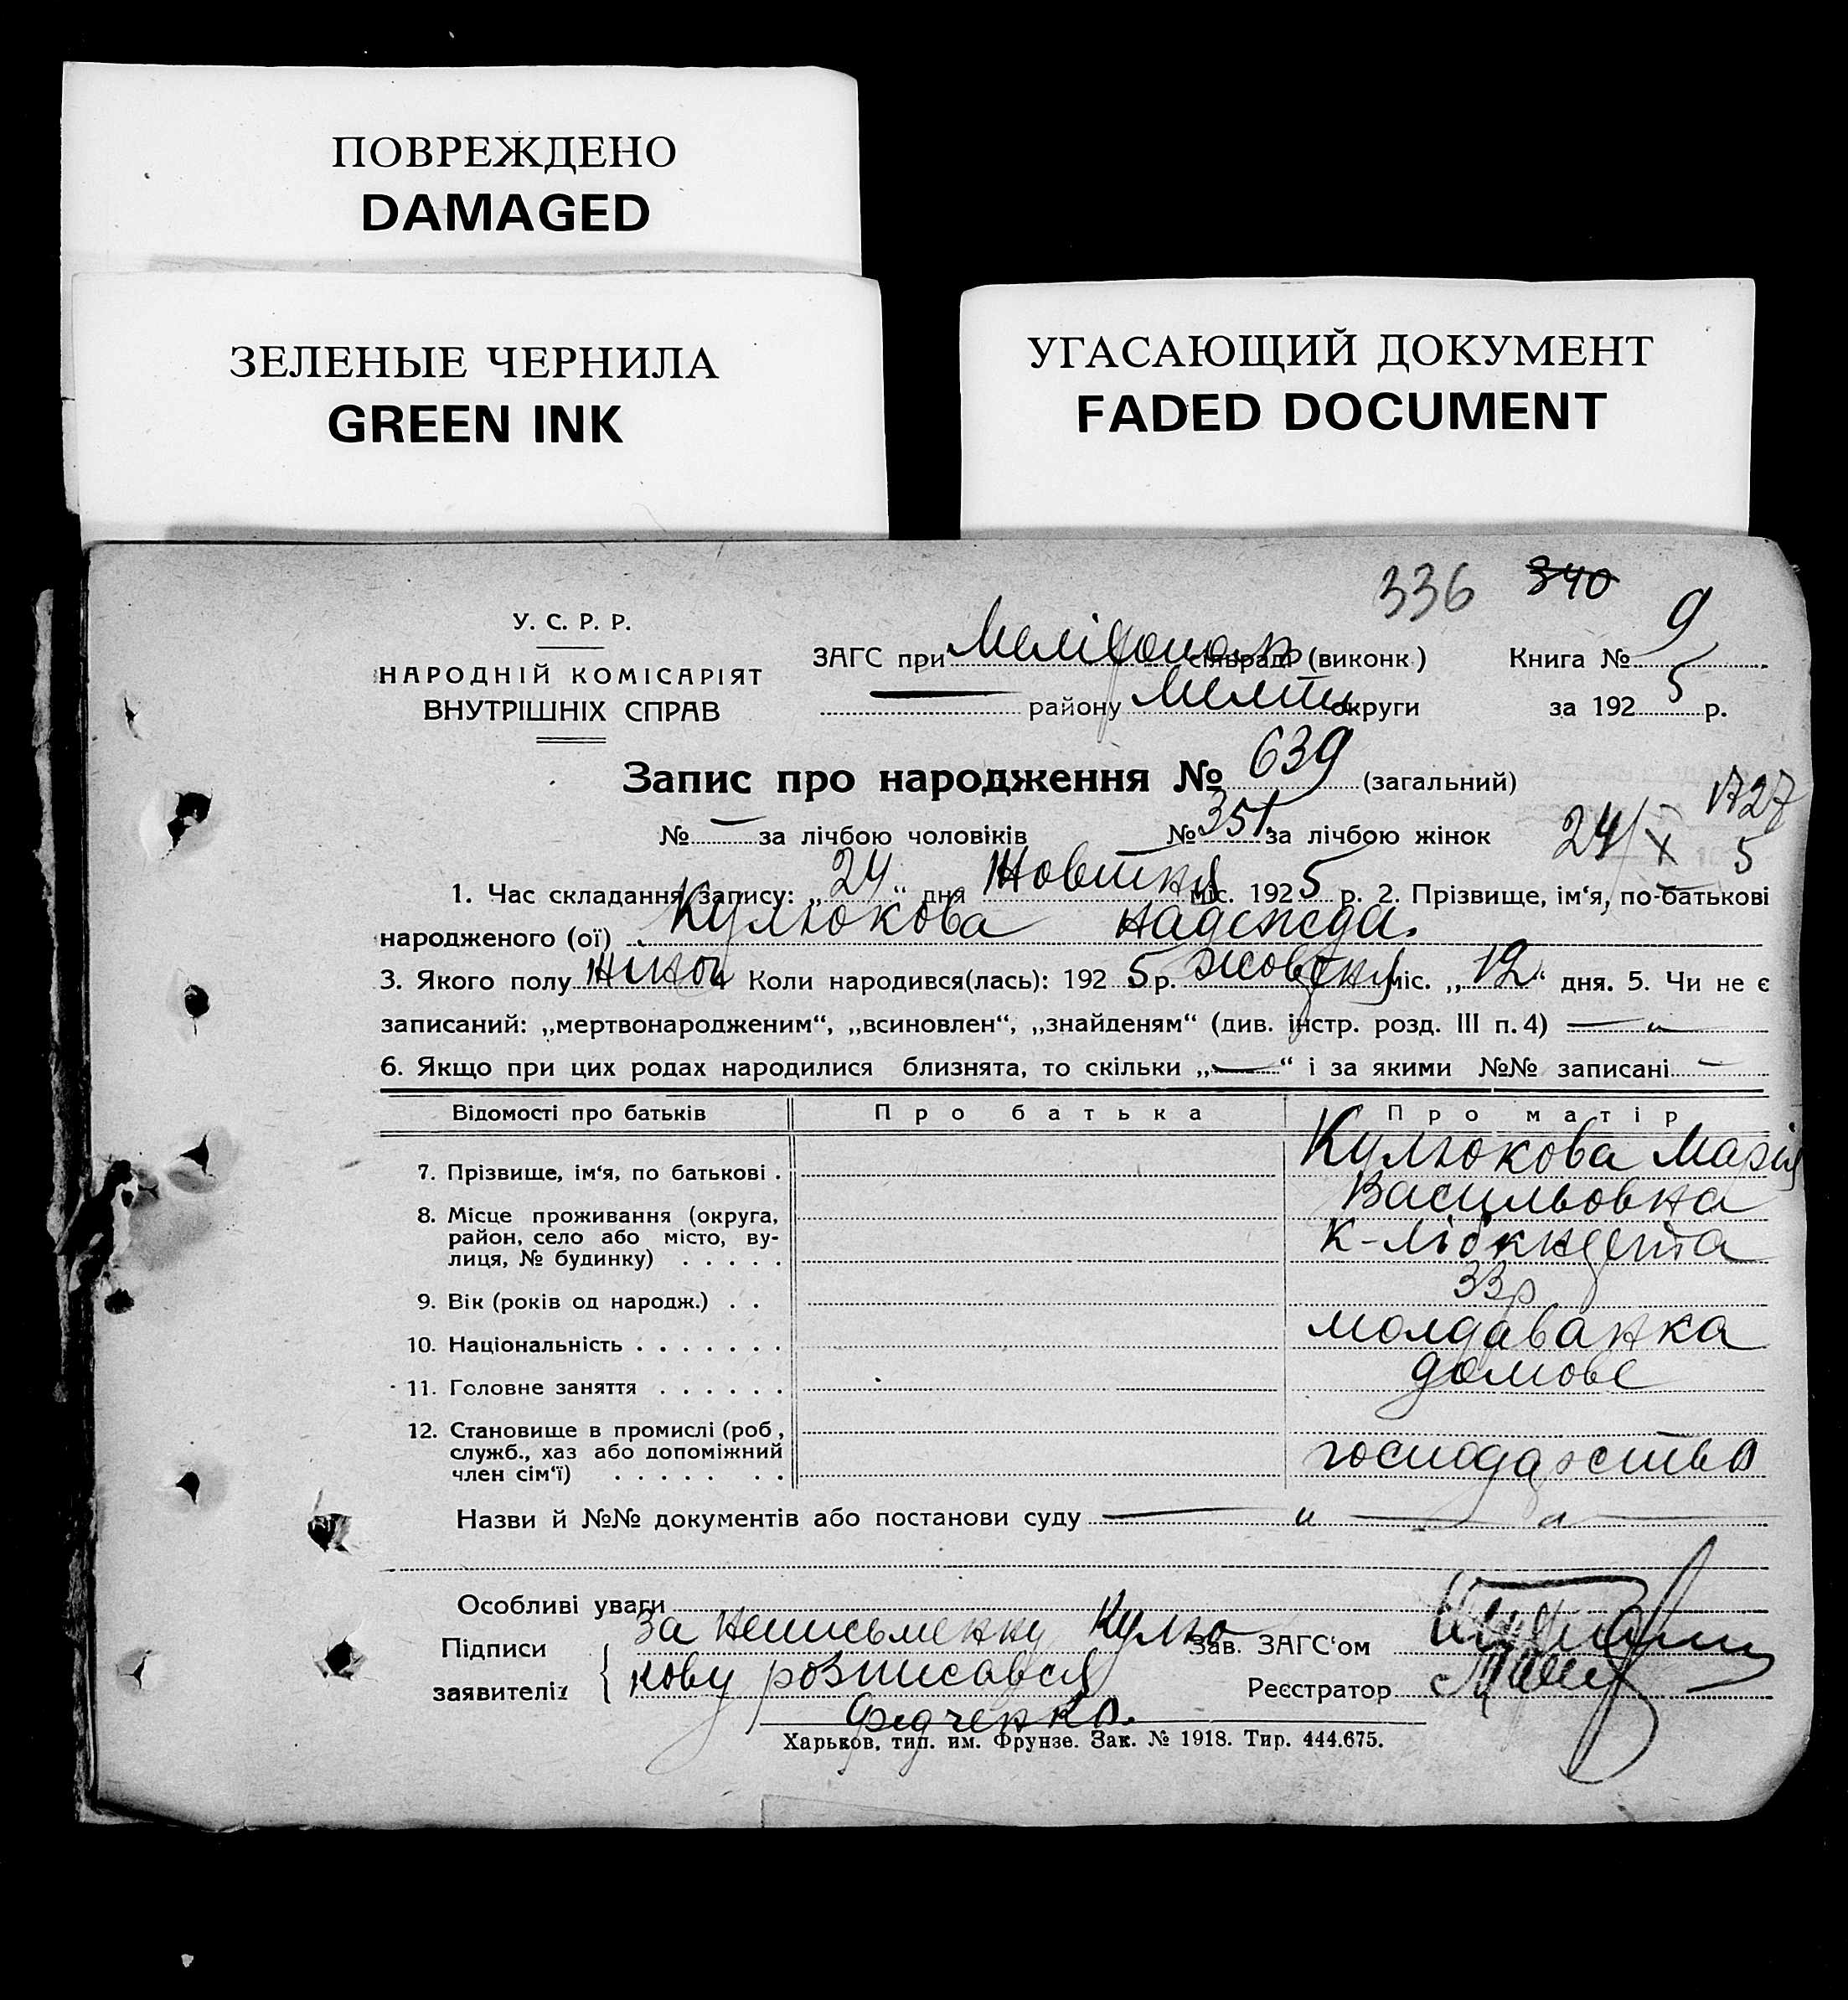 ПОВРЕЖДЕНО
DAMAGED
ЗЕЛЕНЫЕ ЧЕРНИЛА
GREEN INK
УГАСАЮЩИЙ ДОКУМЕНТ
FADED DOCUMENT
336 340
У. С. Р. Р.
НАРОДНІЙ КОМІСАРІЯТ
ВНУТРІШНІХ СПРАВ
ЗАГС при сільраді (виконк.) Книга № 9
— району Меліт округи за 1925 р.
Запис про народження № 639 (загальний)
№ — за лічбою чоловіків № 351 за лічбою жінок
24/X 5
1. Час складання запису: „24“ дня Жовтня міс. 1925 р. 2. Прізвище, ім‘я, по-батькові
народженого (ої) Кулюкова Надежда.
3. Якого полу Жіноч Коли народився(лась): 1925 р. Жовтня міс. „12“ дня. 5. Чи не є
записаний: „мертвонародженим“, „всиновлен“, „знайденям“ (див. інстр. розд. III п. 4) — „ —
6. Якщо при цих родах народилися близнята, то скільки „—“ і за якими №№ записані —
Відомості про батьків Про батька Про матір
7. Прізвище, ім‘я, по батькові . Кулюкова Марія
Васильовна
8. Місце проживання (округа,
район, село або місто, ву-
лиця, № будинку) . . . . . К-Лібкнехта
9. Вік (років од народж.) . . 33 р
10. Національність . . . . . . . молдаванка
11. Головне заняття . . . . . . домове
12. Становище в промислі (роб.,
служб., хаз або допоміжний
член сім‘ї) . . . . . . . господарство
Назви й №№ документів або постанови суду — „ — „ —
Особливі уваги
Підписи За неписьменну Кулю Зав. ЗАГС‘ом
заявителів кову розписався Реєстратор
Федченко.
Харьков, тип. им. Фрунзе. Зак. № 1918. Тир. 444.675.